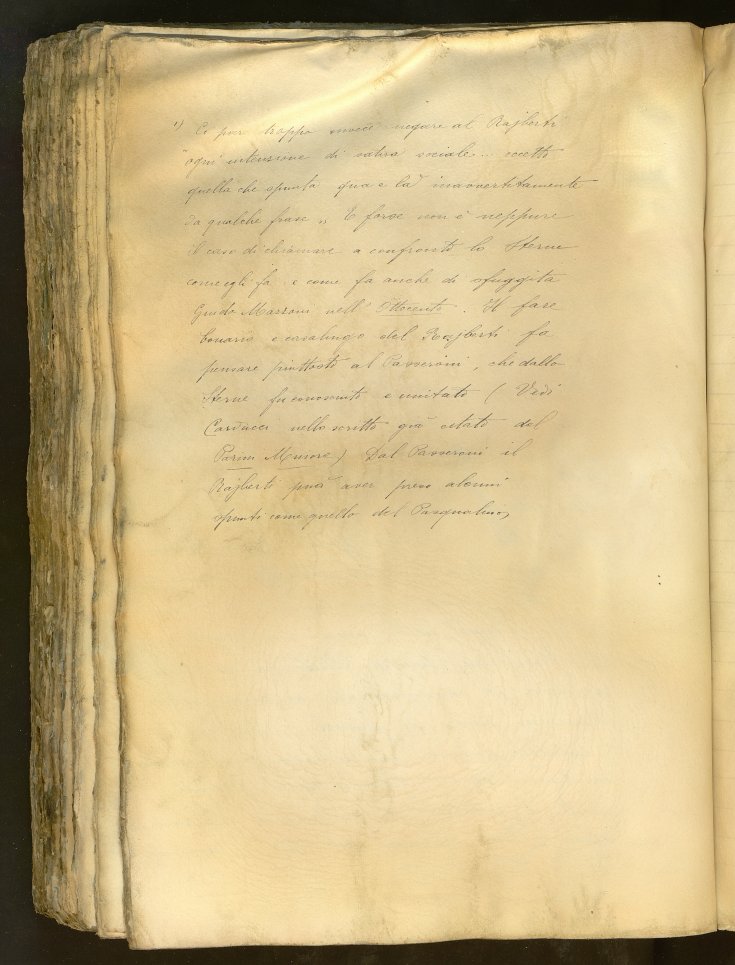 1) È pur troppo invece negare al Rajberti
"ogni intenzione di satira sociale... eccetto
quella che spunta qua e là inavvertitamente
da qualche frase „ E forse non è neppure
il caso di chiamare a confronto lo Sterne
come egli fa e come fa anche di sfuggita
Guido Mazzoni nell' Ottocento. Il fare
bonario e casalingo del Rajberti fa
pensare piuttosto al Passeroni, che dallo
Sterne fu conosciuto e imitato (Vedi
Carducci nello scritto già citato del
Parini Minore) Dal Passeroni il
Rajberti può aver preso alcuni
spunti come quello del Pasqualino,